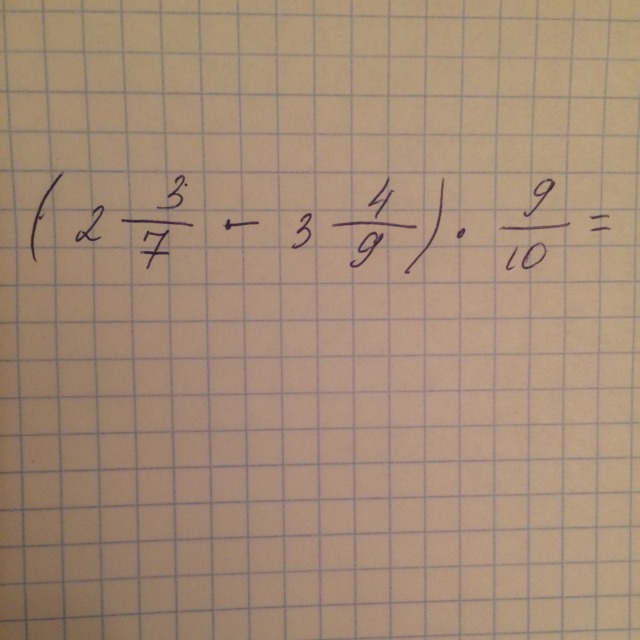 (2 3/7 - 3 4/9) · 9/10 =